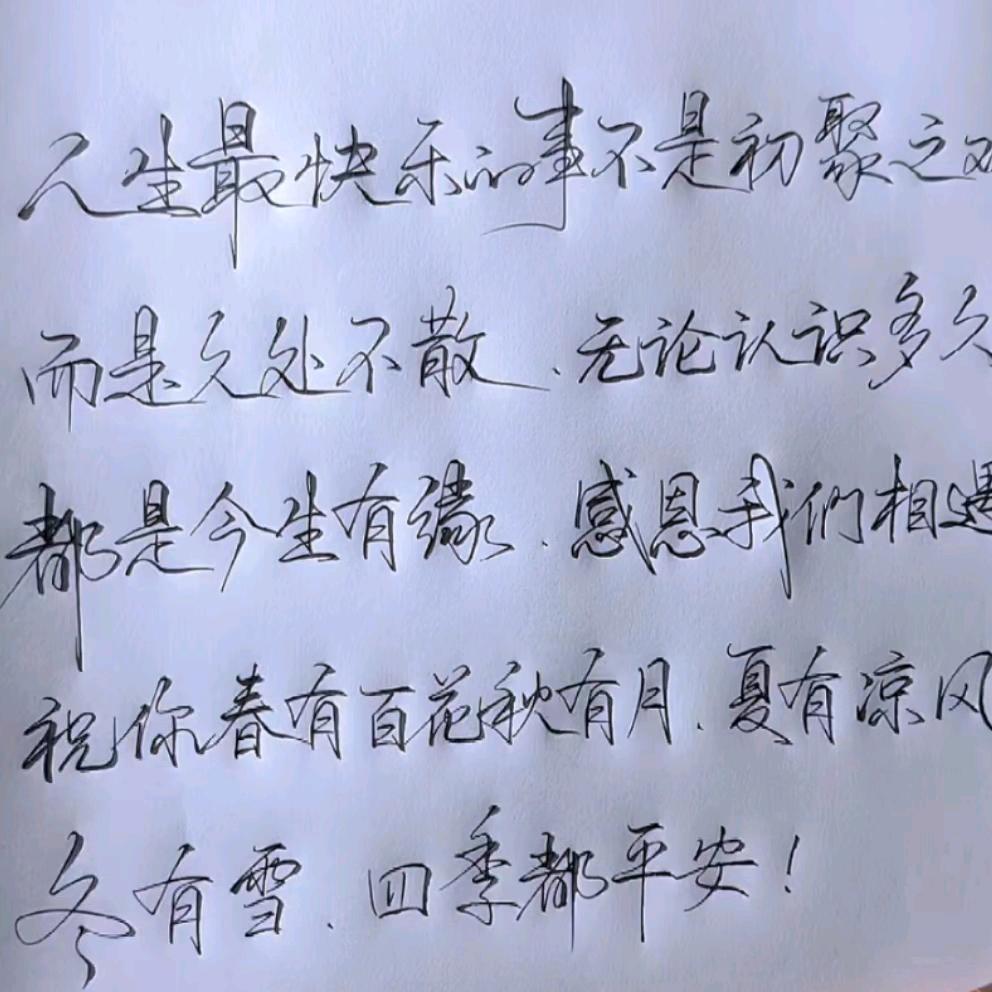 人生最快乐的事不是初聚之欢
而是久处不散.无论认识多久
都是今生有缘.感恩我们相遇
祝你春有百花秋有月.夏有凉风
冬有雪.四季都平安!